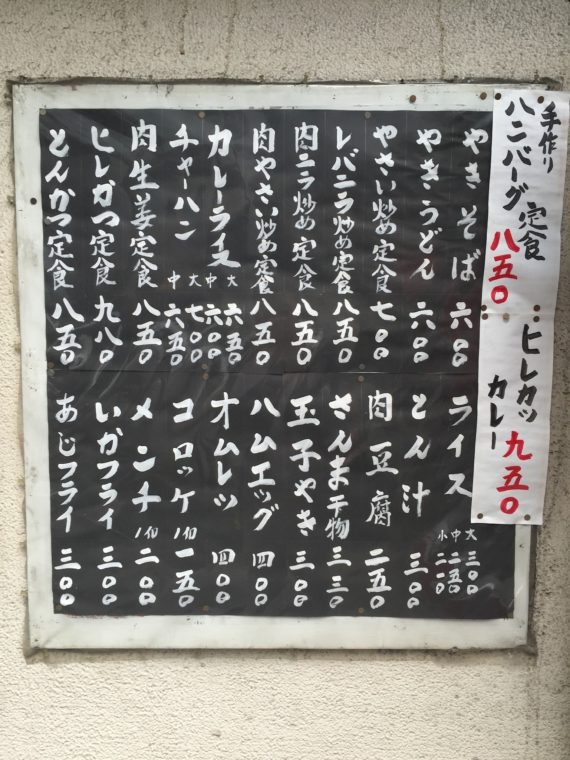 手作り
ハンバーグ定食
八五〇
ヒレカツ
カレー
九五〇
やきそば 六〇〇
やきうどん 六〇〇
やさい炒め定食 七〇〇
レバニラ炒め定食 八五〇
肉ニラ炒め定食 八五〇
肉やさい炒め定食 八五〇
カレーライス 大 六五〇
中 六〇〇
チャーハン 大 七〇〇
中 六五〇
肉生姜定食 八五〇
ヒレカツ定食 九八〇
とんかつ定食 八五〇
ライス 大 三〇〇
中 二五〇
小 二〇〇
とん汁 三〇〇
肉豆腐 二五〇
さんま干物 三三〇
玉子やき 三〇〇
ハムエッグ 四〇〇
オムレツ 四〇〇
コロッケ 1ヶ 一五〇
メンチ 1ヶ 二〇〇
いかフライ 三〇〇
あじフライ 三〇〇